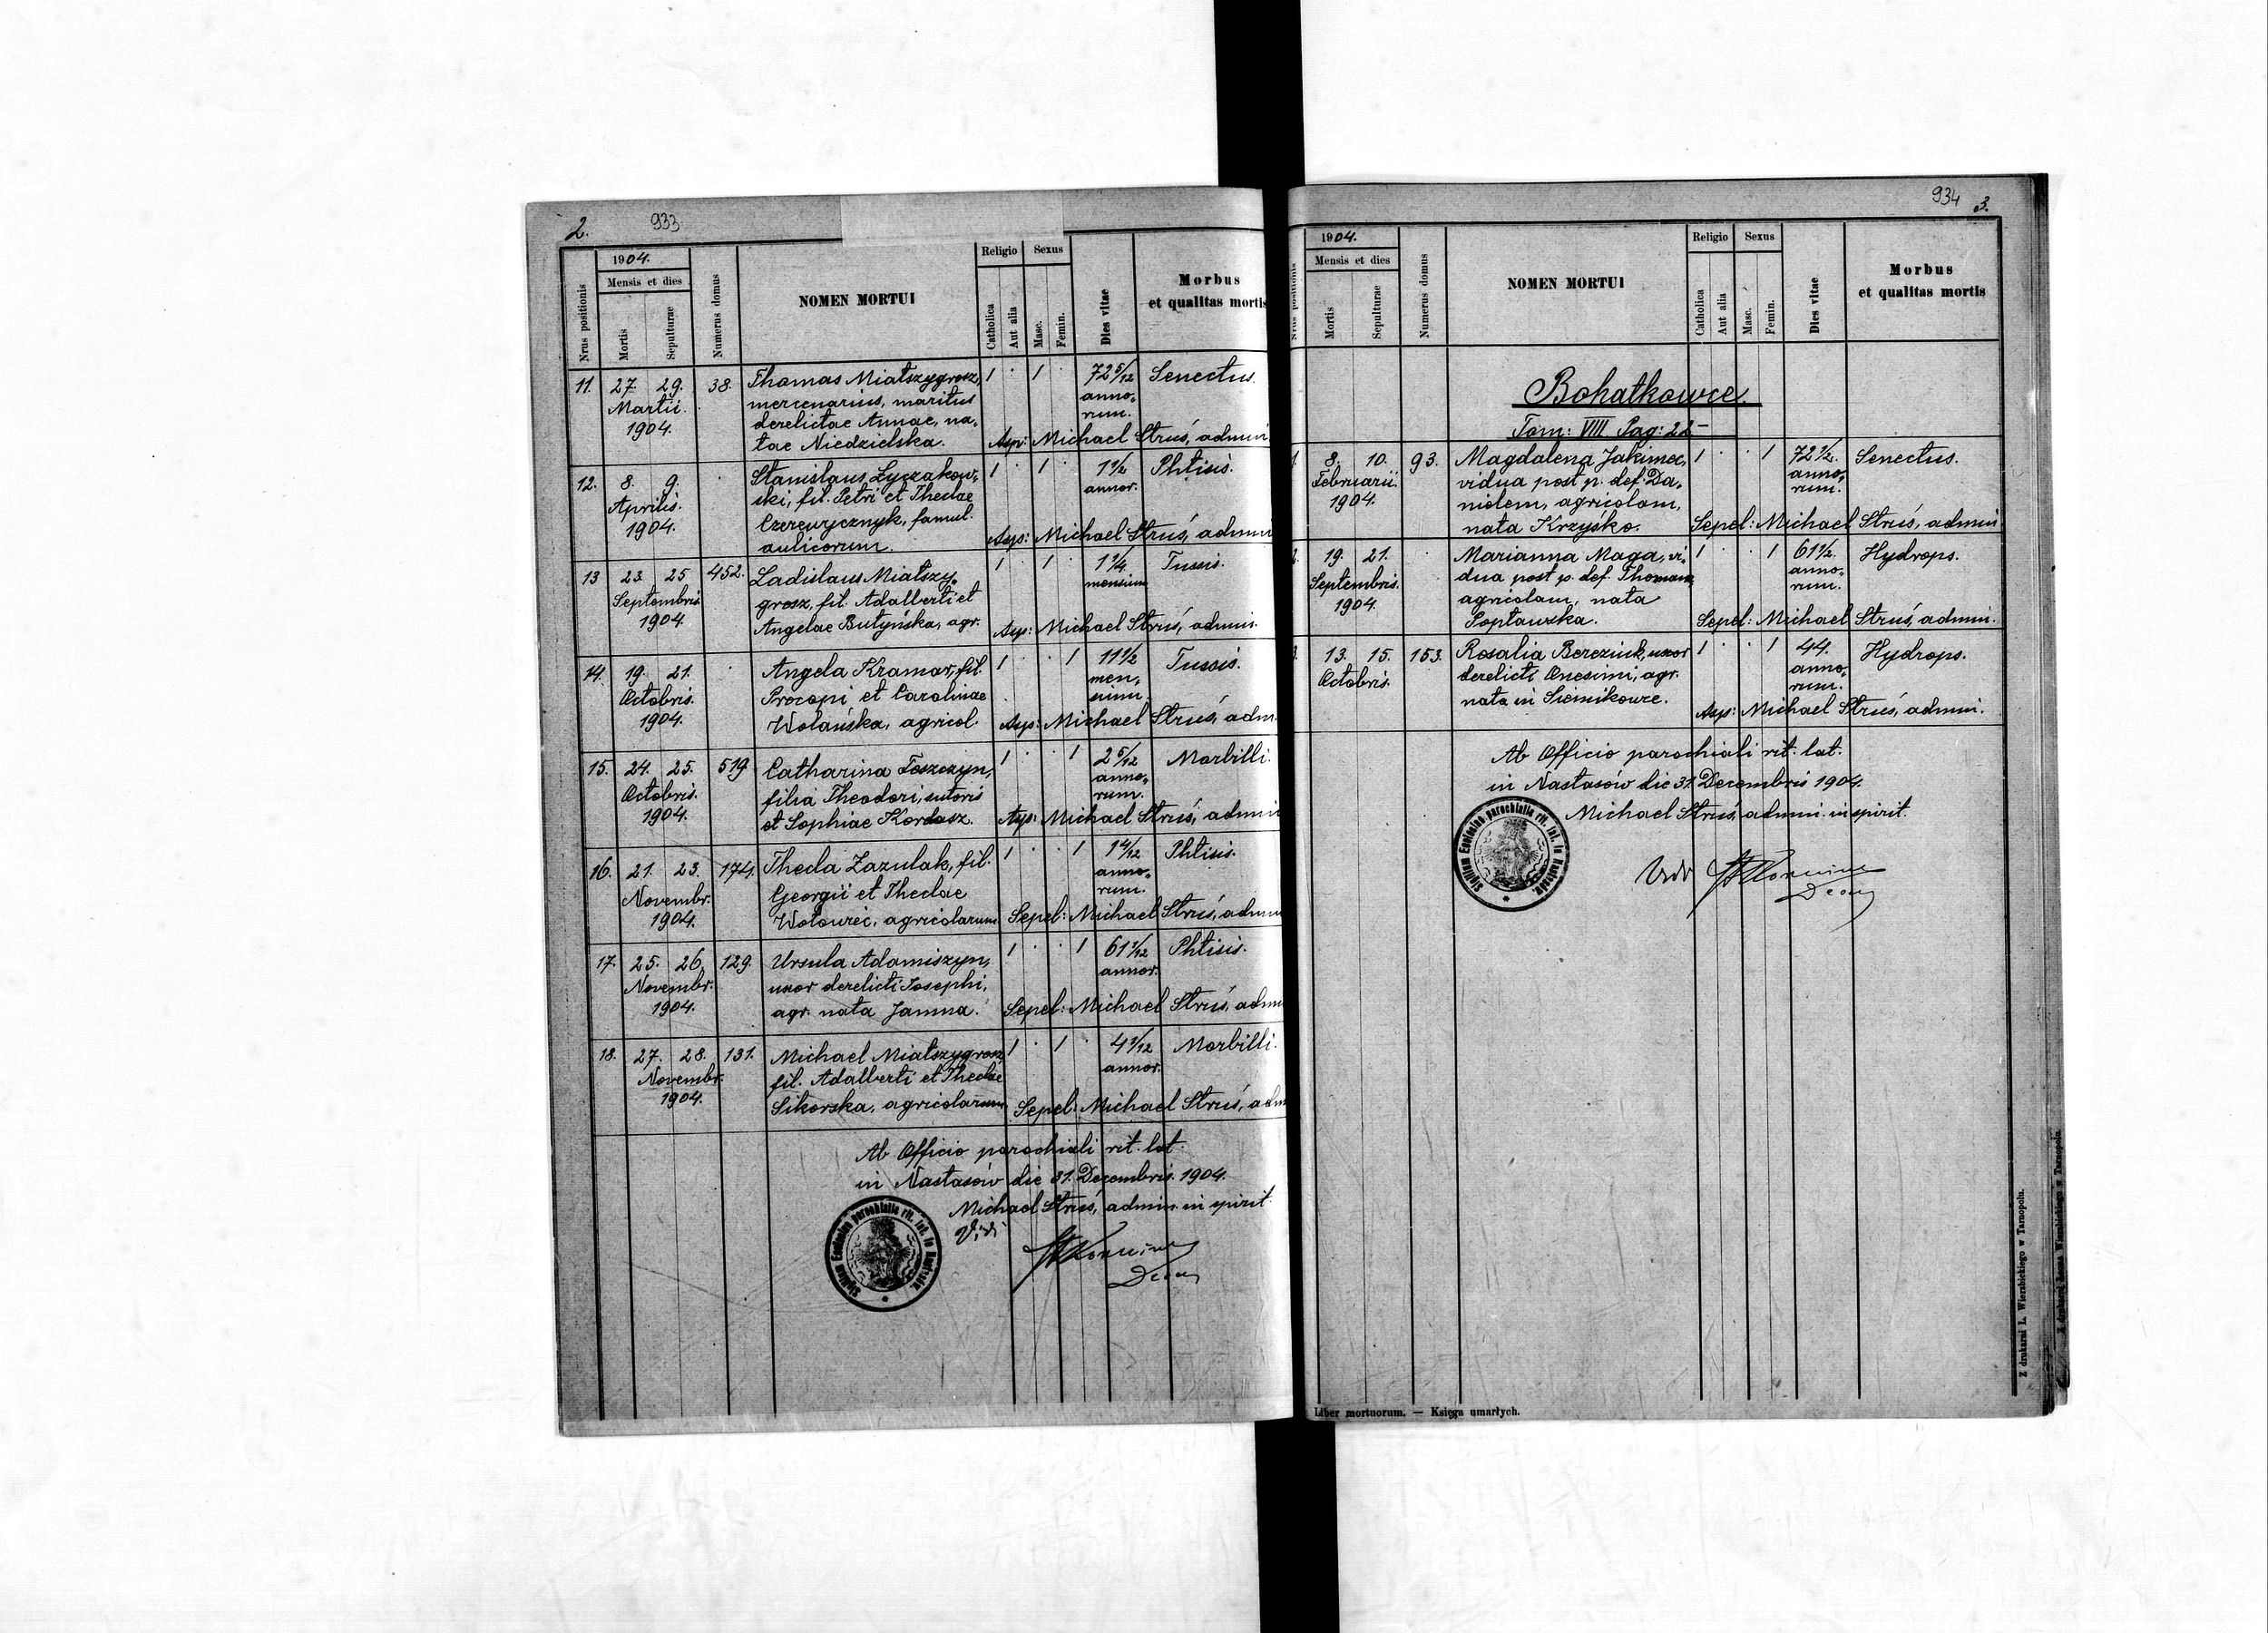 2. 933
Nrus positionis
1904.
Mensis et dies
Mortis
Sepulturae
Numerus domus
NOMEN MORTUI
Religio
Catholica
Aut alia
Sexus
Masc.
Femin.
Dies vitae
Morbus
et qualitas mortis
11. 27. 29. 38. Thomas Miałszygrosz, 1 · 1 · 72 5/12 Senectus.
Martii. mercenarius, maritus anno-
1904. derelictae Annae, na- rum.
tae Niedzielska. Asp: Michael Struś, admin.
12. 8. 9. · Stanislaus Łyczakow- 1 · 1 · 1 1/2 Phtisis.
Aprilis. ski, fil. Petri et Theclae annor.
1904. Czerewycznyk, famul.
aulicorum. Asp: Michael Struś, admin
13 23 25 452. Ladislaus Miałszy- 1 · 1 · 1 1/4 Tussis.
Septembris grosz, fil. Adalberti et mensium
1904. Angelae Butyńska, agr. Asp: Michael Struś, admin.
14. 19. 21. · Angela Kramar, fil. 1 · · 1 11 1/2 Tussis.
Octobris. Procopi et Carolinae men-
1904. Wolańska, agricol. sium.
Asp: Michael Struś, adm.
15. 24. 25. 519 Catharina Toszczyn, 1 · · 1 2 5/12 Morbilli.
Octobris. filia Theodori, sutoris anno-
1904. et Sophiae Kordasz. rum.
Asp: Michael Struś, admin
16. 21. 23. 174. Thecla Zazulak, fil. 1 · · 1 1 4/12 Phtisis.
Novembr. Georgii et Theclae anno-
1904. Wołowiec, agricolarum rum.
Sepel: Michael Struś, admin
17. 25. 26. 129. Ursula Adamiszyn, 1 · · 1 61 1/12 Phtisis.
Novembr. uxor derelicti Josephi, annor.
1904. agr. nata Jamna. Sepel: Michael Struś, admi
18. 27. 28. 131. Michael Miałszygrosz 1 · 1 · 4 3/12 Morbilli.
Novembr. fil. Adalberti et Theclae annor.
1904. Sikorska, agricolarum Sepel: Michael Struś, adm
Ab Officio parochiali rit. lat.
in Nastasów die 31. Decembris. 1904.
Michael Struś, admin. in spirit.
Vidi
Sigillum Ecclesiae parochialis rit. lat. in Nastasów.
934 3.
Nrus positionis
1904.
Mensis et dies
Mortis
Sepulturae
Numerus domus
NOMEN MORTUI
Religio
Catholica
Aut alia
Sexus
Masc.
Femin.
Dies vitae
Morbus
et qualitas mortis
Bohatkowce.
Tom: VIII Pag: 22-
1. 8. 10. 93. Magdalena Jakimec, 1 · · 1 72 1/2 Senectus.
Februarii. vidua post p. def. Da- anno-
1904. nielem, agricolam, rum.
nata Krzyśko. Sepel: Michael Struś, admin.
2. 19. 21. · Marianna Maga, vi- 1 · · 1 61 1/2 Hydrops.
Septembris. dua post p. def. Thomam anno-
1904. agricolam, nata rum.
Sopławska. Sepel: Michael Struś, admin.
3. 13. 15. 153. Rosalia Bereziuk, uxor 1 · · 1 44. Hydrops.
Octobris. derelicti Onesimi, agr. anno-
nata in Siemikowce. rum.
Asp: Michael Struś, admin.
Ab Officio parochiali rit. lat.
in Nastasów die 31. Decembris 1904.
Michael Struś, admin. in spirit.
Sigillum Ecclesiae parochialis rit. lat. in Nastasów.
Vidi
Liber mortuorum. — Księga umarłych.
Z drukarni L. Wierzbickiego w Tarnopolu.